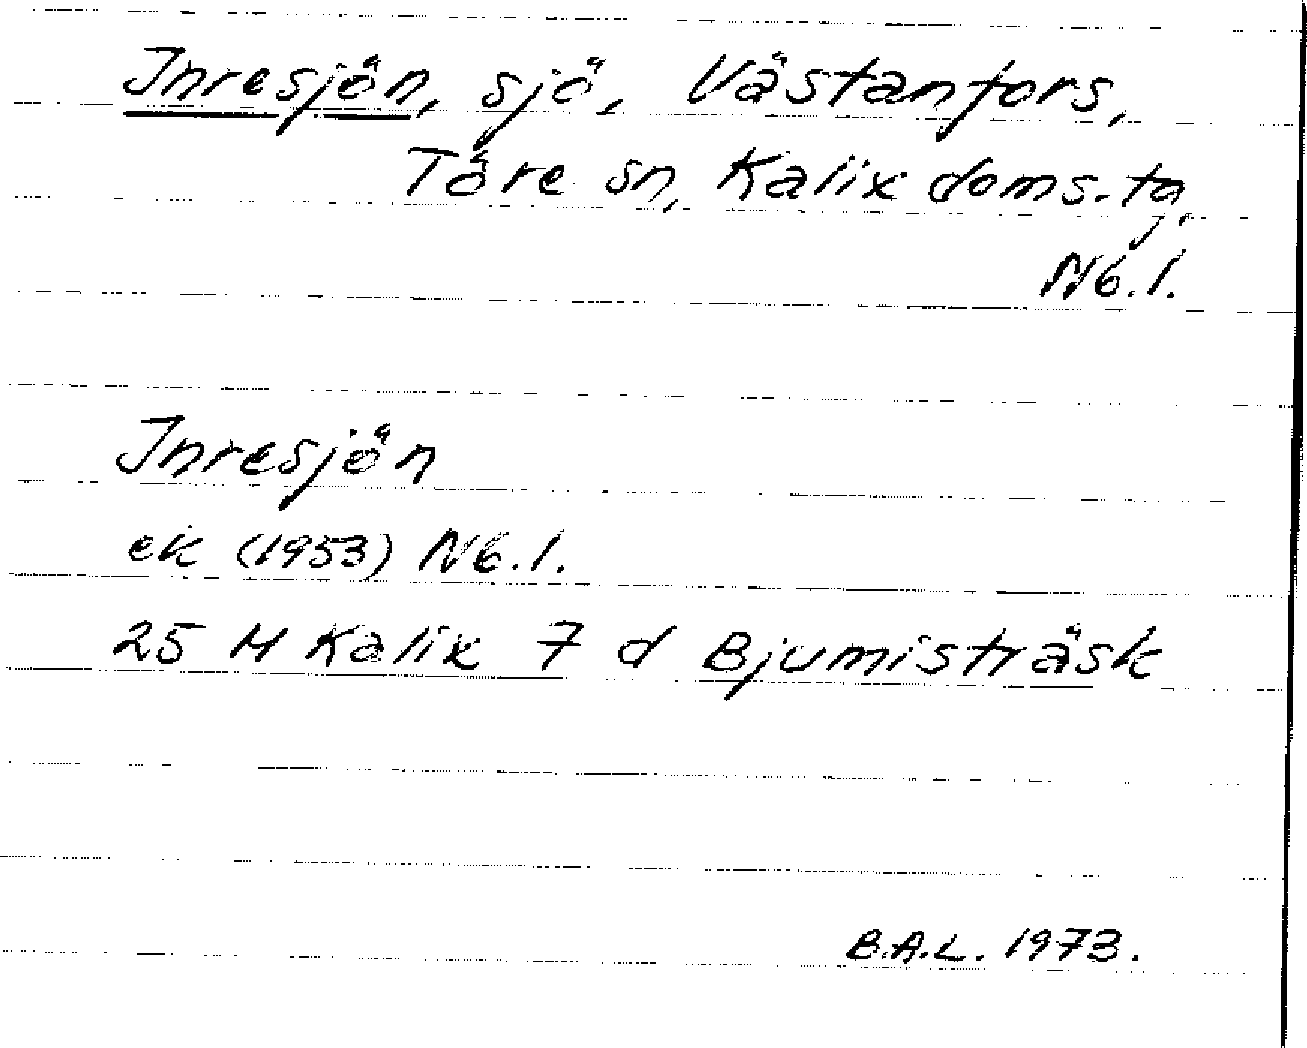 Inresjön, sjö, Västanfors,
Töre sn, Kalix doms.tg,
Nb.l.
Inresjön
ek (1953) Nb.l.
25 M Kalix 7 d Bjumisträsk
B.A.L. 1973.